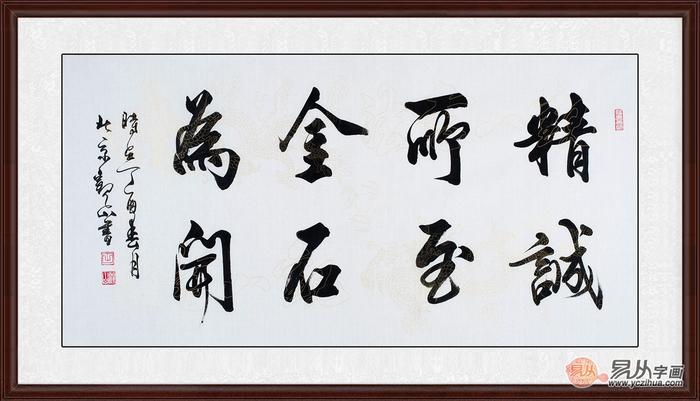 精誠
所至
金石
為開
時在丁酉春月
北京觀山書
易从字画
www.yczihua.com